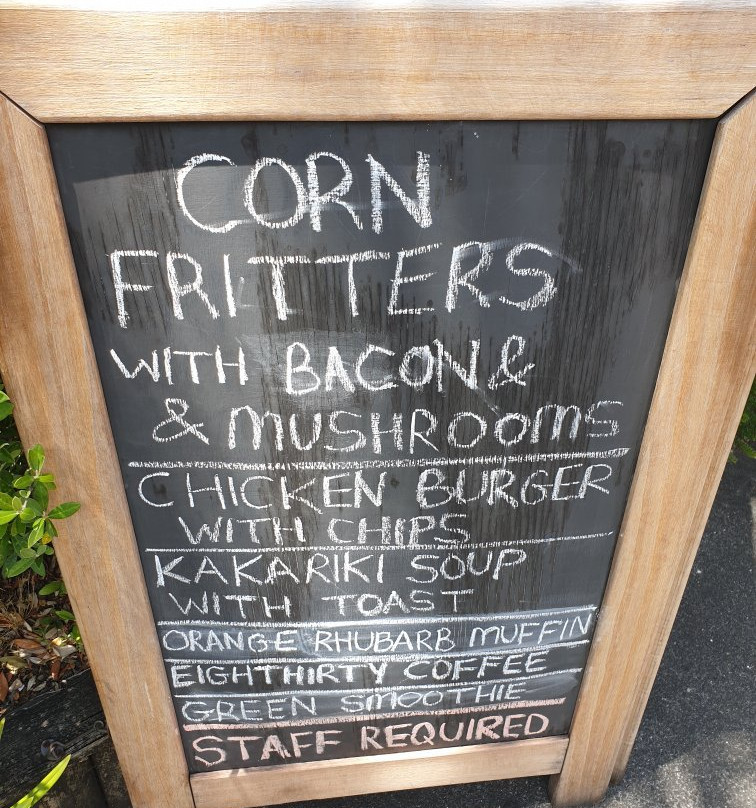 CORN
FRITTERS
WITH BACON &
& MUSHROOMS
CHICKEN BURGER
WITH CHIPS
KAKARIKI SOUP
WITH TOAST
ORANGE RHUBARB MUFFIN
EIGHTHIRTY COFFEE
GREEN SMOOTHIE
STAFF REQUIRED